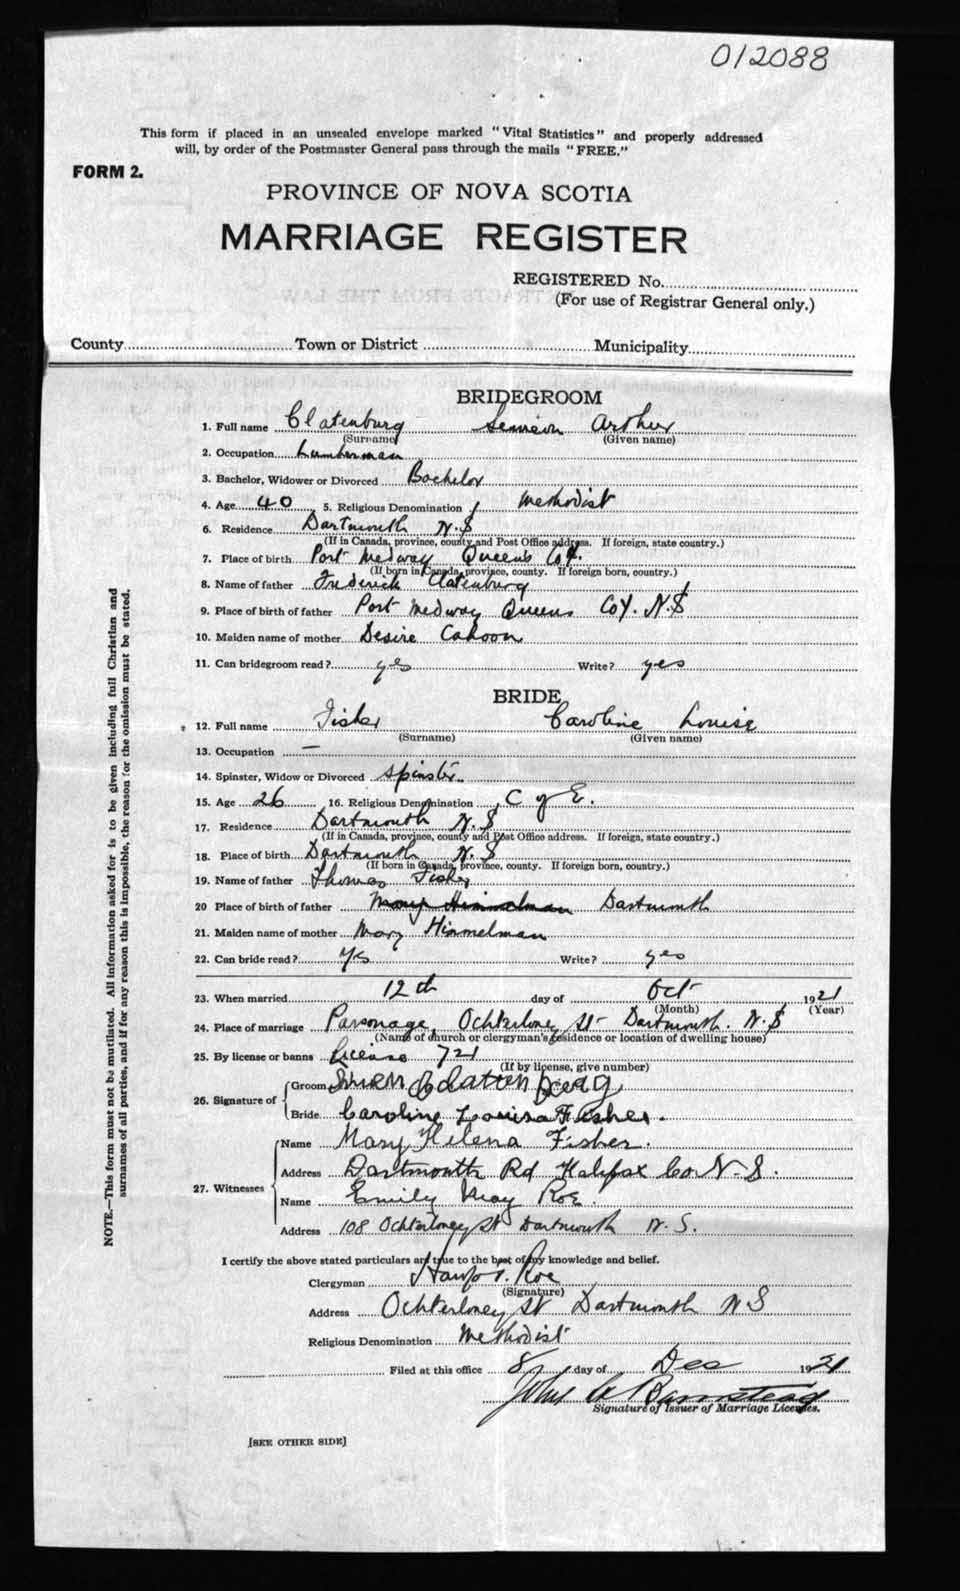 012088
This form if placed in an unsealed envelope marked "Vital Statistics" and properly addressed
will, by order of the Postmaster General pass through the mails "FREE."
FORM 2.
PROVINCE OF NOVA SCOTIA
MARRIAGE REGISTER
REGISTERED No.
(For use of Registrar General only.)
County Town or District Municipality
BRIDEGROOM
1. Full name Clatenburg Simeon Arthur
(Surname) (Given name)
2. Occupation Lumberman
3. Bachelor, Widower or Divorced Bachelor
4. Age 40 5. Religious Denomination Methodist
6. Residence Dartmouth N.S
(If in Canada, province, county and Post Office address. If foreign, state country.)
7. Place of birth Port Medway Queens Coy.
(If born in Canada, province, county. If foreign born, country.)
8. Name of father Frederick Clatenburg
9. Place of birth of father Port Medway Queens Coy. N.S
10. Maiden name of mother Desire Cahoon
11. Can bridegroom read? yes Write? yes
BRIDE
12. Full name Fisher Caroline Louise
(Surname) (Given name)
13. Occupation —
14. Spinster, Widow or Divorced Spinster
15. Age 26 16. Religious Denomination C of E.
17. Residence Dartmouth N.S
(If in Canada, province, county and Post Office address. If foreign, state country.)
18. Place of birth Dartmouth N.S
(If born in Canada, province, county. If foreign born, country.)
19. Name of father Thomas Fisher
20 Place of birth of father Mary Himmelman Dartmouth
21. Maiden name of mother Mary Himmelman
22. Can bride read? Yes Write? yes
23. When married 12th day of Oct 1921
(Month) (Year)
24. Place of marriage Parsonage, Ochterloney St Dartmouth. N.S
(Name of church or clergyman's residence or location of dwelling house)
25. By license or banns License 721
(If by license, give number)
26. Signature of
Groom
Bride Caroline Louisa Fisher.
27. Witnesses
Name Mary Helena Fisher.
Address Dartmouth Rd Halifax Co N.S.
Name Emily May Roe.
Address 108 Ochterloney St Dartmouth N.S.
I certify the above stated particulars are true to the best of my knowledge and belief.
Clergyman Roe
(Signature)
Address Ochterloney St Dartmouth N S
Religious Denomination Methodist
Filed at this office 8 day of Dec 1921
John Barnstead
Signature of Issuer of Marriage Licenses.
[SEE OTHER SIDE]
NOTE.—This form must not be mutilated. All information asked for is to be given including full Christian and
surnames of all parties, and if for any reason this is impossible, the reason for the omission must be stated.